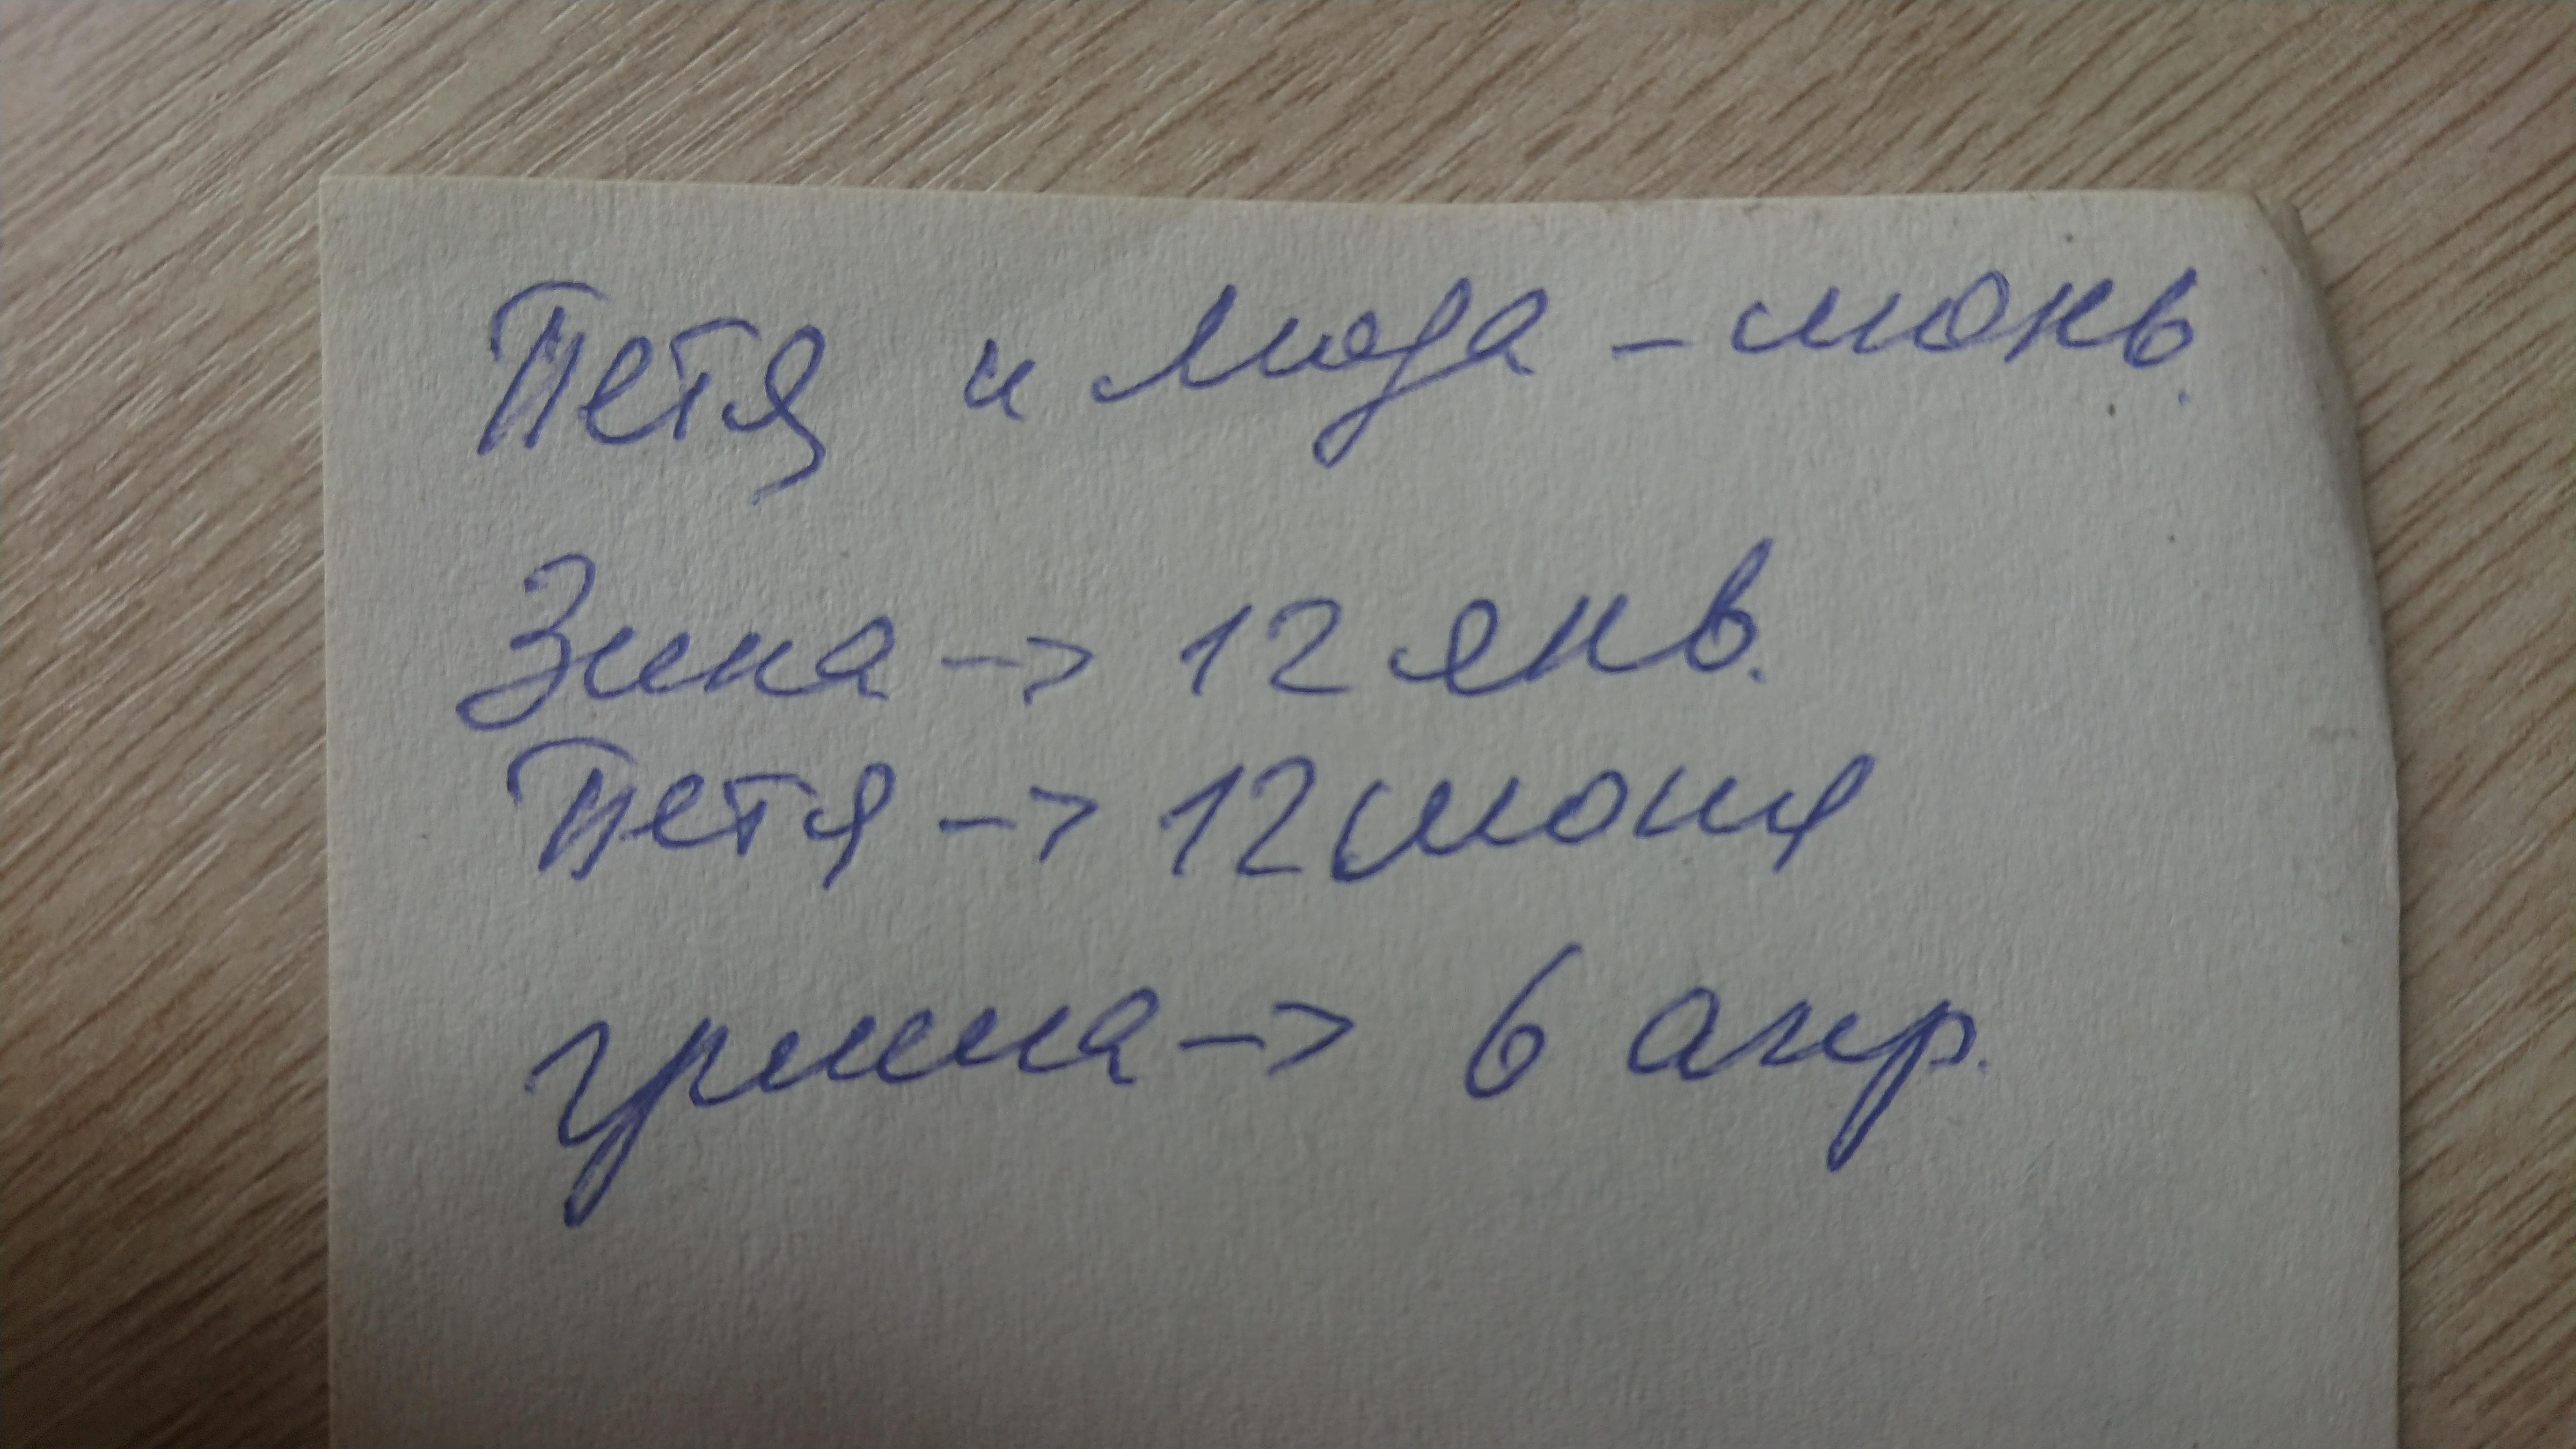 Петя и Люда - июнь.
Зина -> 12 янв.
Петя -> 12 июня
Гриша -> 6 апр.